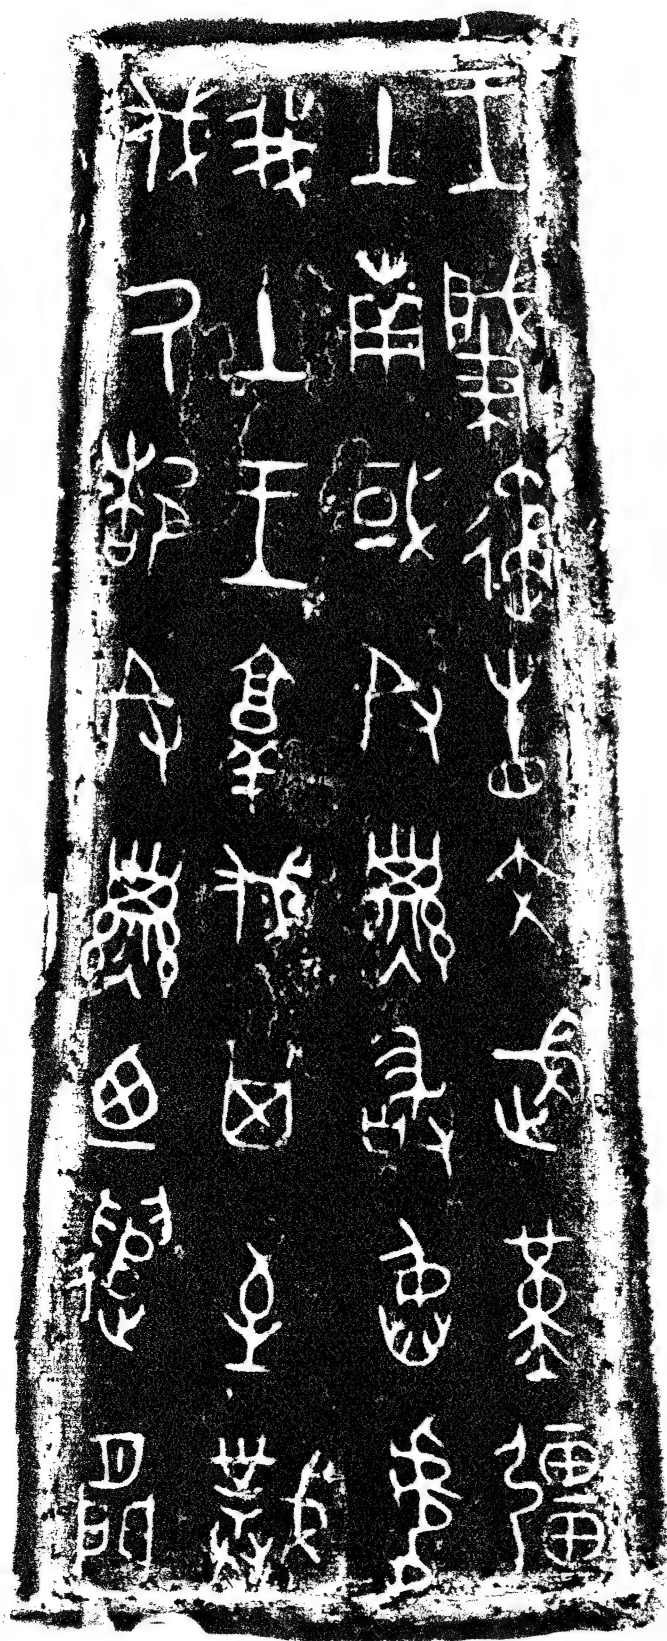 王肇遹省文武堇彊
土南或𠬝孳敢臽虐
我土王𦎫伐其至撲
伐氒都𠬝孳廼遣閒